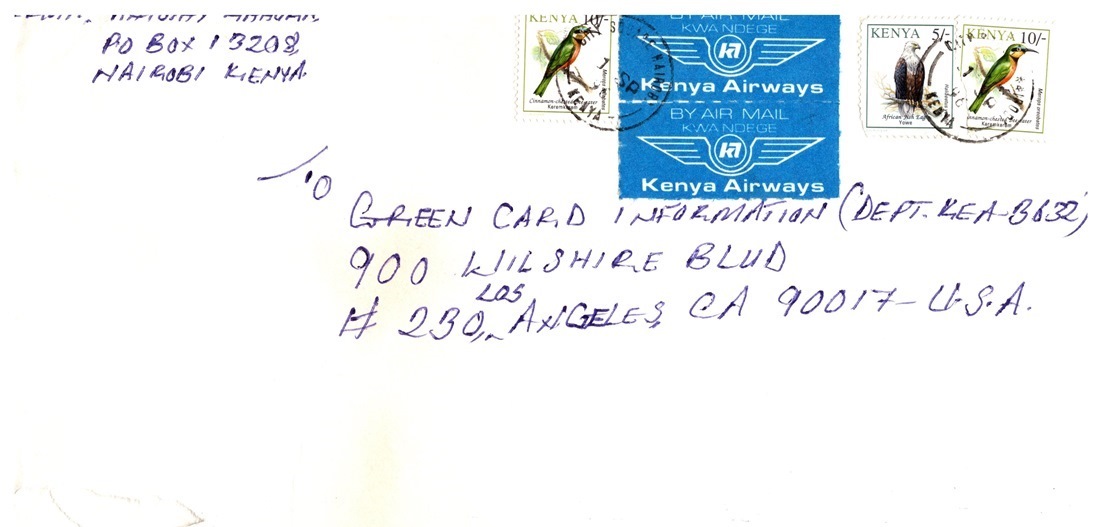 PO BOX 13208,
NAIROBI KENYA.
KENYA 10/-
Cinnamon-chested Bee-eater
Keremkerem
Merops oreobates
BY AIR MAIL
KWA NDEGE
Kenya Airways
BY AIR MAIL
KWA NDEGE
Kenya Airways
KENYA 5/-
African Fish Eagle
Yowe
KENYA 10/-
Cinnamon-chested Bee-eater
Merops oreobates
KENYA
NAIROBI
KENYA
TO
GREEN CARD INFORMATION (DEPT. KEA-B632)
900 WILSHIRE BLVD
# 230, LOS ANGELES, CA 90017-U.S.A.